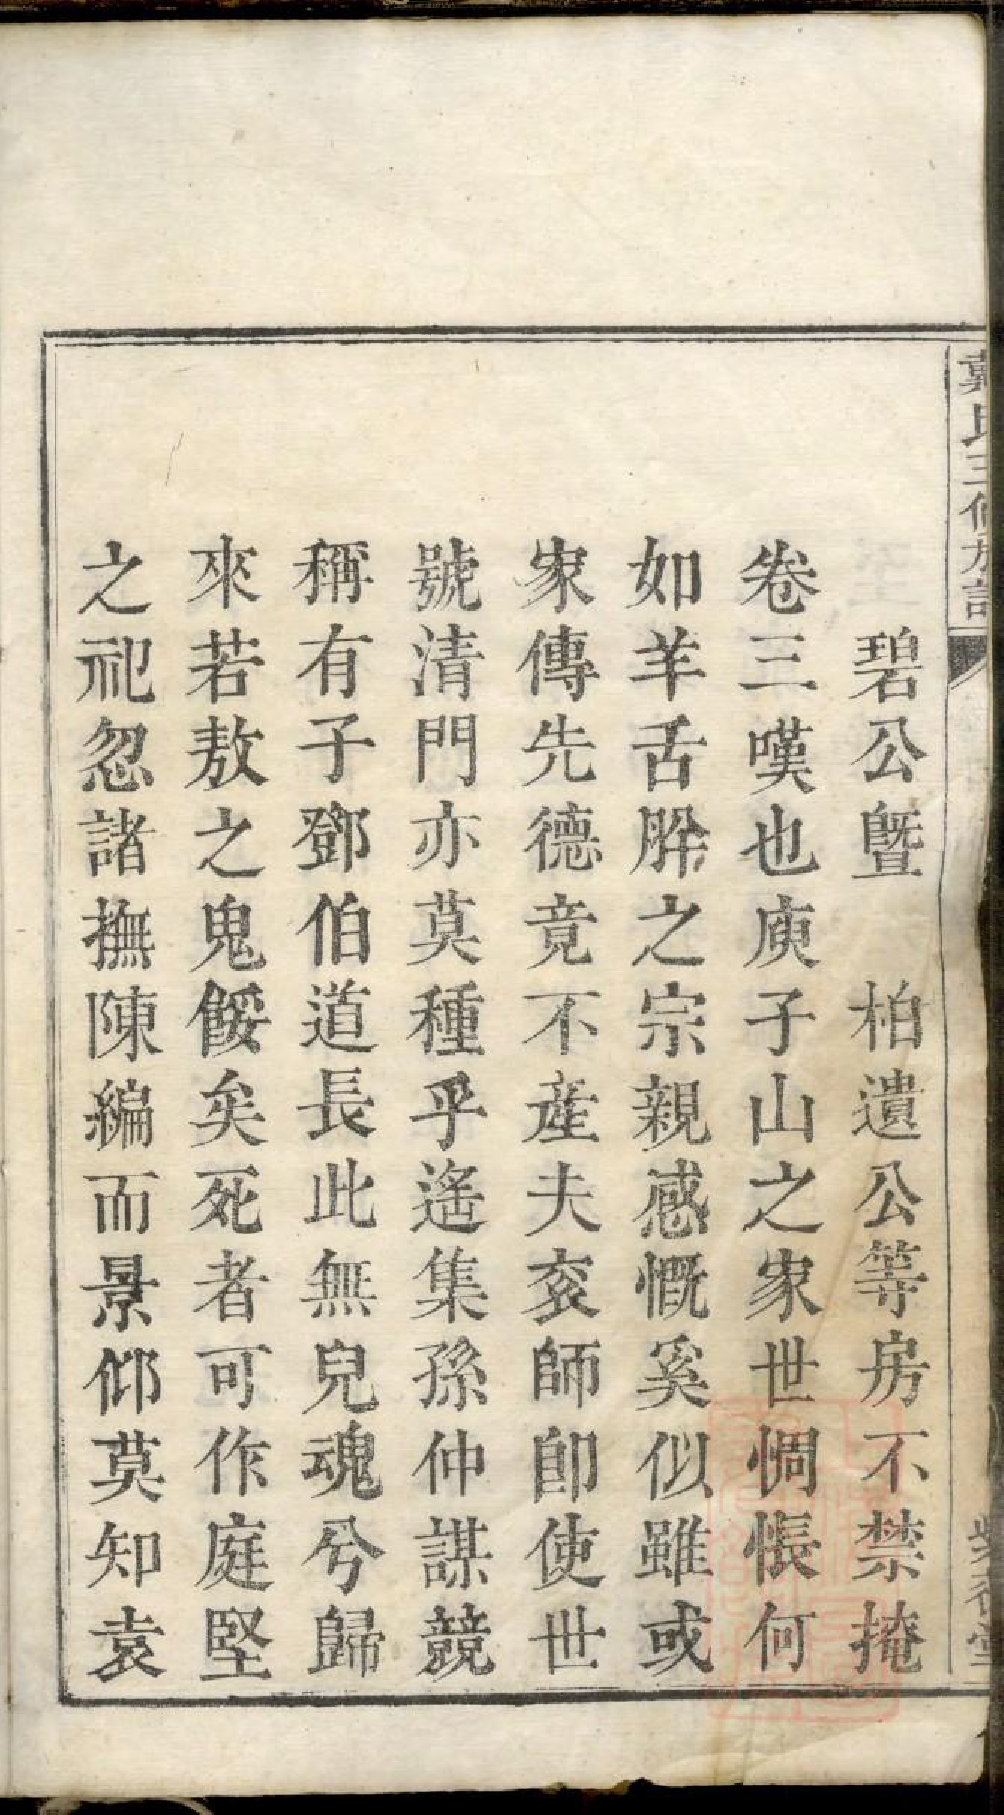 戴氏三修族譜
碧公暨　柏遺公等房不禁掩
卷三嘆也庾子山之家世惆悵何
如羊舌肸之宗親感慨奚似雖或
家傳先德竟不產夫袞師卽使世
號清門亦莫種乎遙集孫仲謀競
稱有子鄧伯道長此無兒魂兮歸
來若敖之鬼餒矣死者可作庭堅
之祀忽諸撫陳編而景仰莫知袁